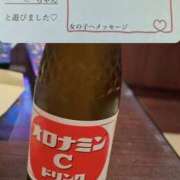 ちゃん
と遊びました♡
女の子へメッセージ
オロナミン
C
ドリンク